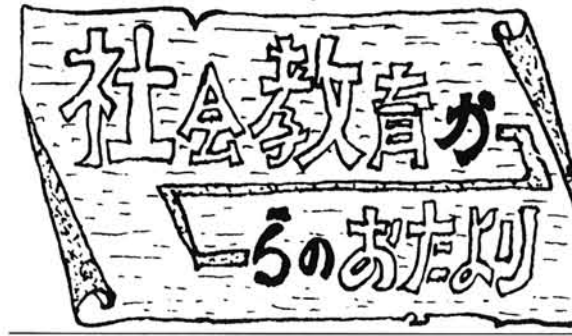 社会教育か
らのおたより